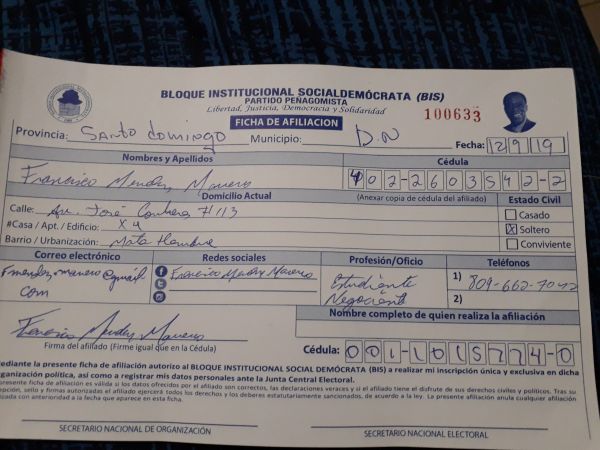 BLOQUE INSTITUCIONAL SOCIALDEMÓCRATA (BIS)
PARTIDO PEÑAGOMISTA
Libertad, Justicia, Democracia y Solidaridad
FICHA DE AFILIACION
100633
Provincia: Santo domingo Municipio: D.N Fecha: 12/9/19
Nombres y Apellidos Cédula
Francisco Mendez Manero 402-2603542-2
Domicilio Actual (Anexar copia de cédula del afiliado) Estado Civil
Calle: Av. José Contrera #113 Casado
#Casa / Apt. / Edificio: X 4 Soltero
Barrio / Urbanización: Mata Hambre Conviviente
Correo electrónico Redes sociales Profesión/Oficio Teléfonos
Francisco Mendez Manero Estudiante 1) 809-662-7042
com Negociante 2)
Nombre completo de quien realiza la afiliación
Francisco Mendez Manero
Firma del afiliado (Firme igual que en la Cédula) Cédula: 001-1015774-0
ediante la presente ficha de afiliación autorizo al BLOQUE INSTITUCIONAL SOCIAL DEMÓCRATA (BIS) a realizar mi inscripción única y exclusiva en dicha
ganización política, así como a registrar mis datos personales ante la Junta Central Electoral.
presente ficha de afiliación es válida si los datos ofrecidos por el afiliado son correctos, las declaraciones veraces y si el afiliado tiene el disfrute de sus derechos civiles y políticos. Tras su
epción, sello y firmas autorizadas el afiliado ejercerá todos los derechos y los deberes estatutariamente sancionados, de acuerdo a la ley. La presente afiliación anula cualquier afiliación
lizada con anterioridad a la fecha que aparece en esta ficha.
SECRETARIO NACIONAL DE ORGANIZACIÓN SECRETARIO NACIONAL ELECTORAL